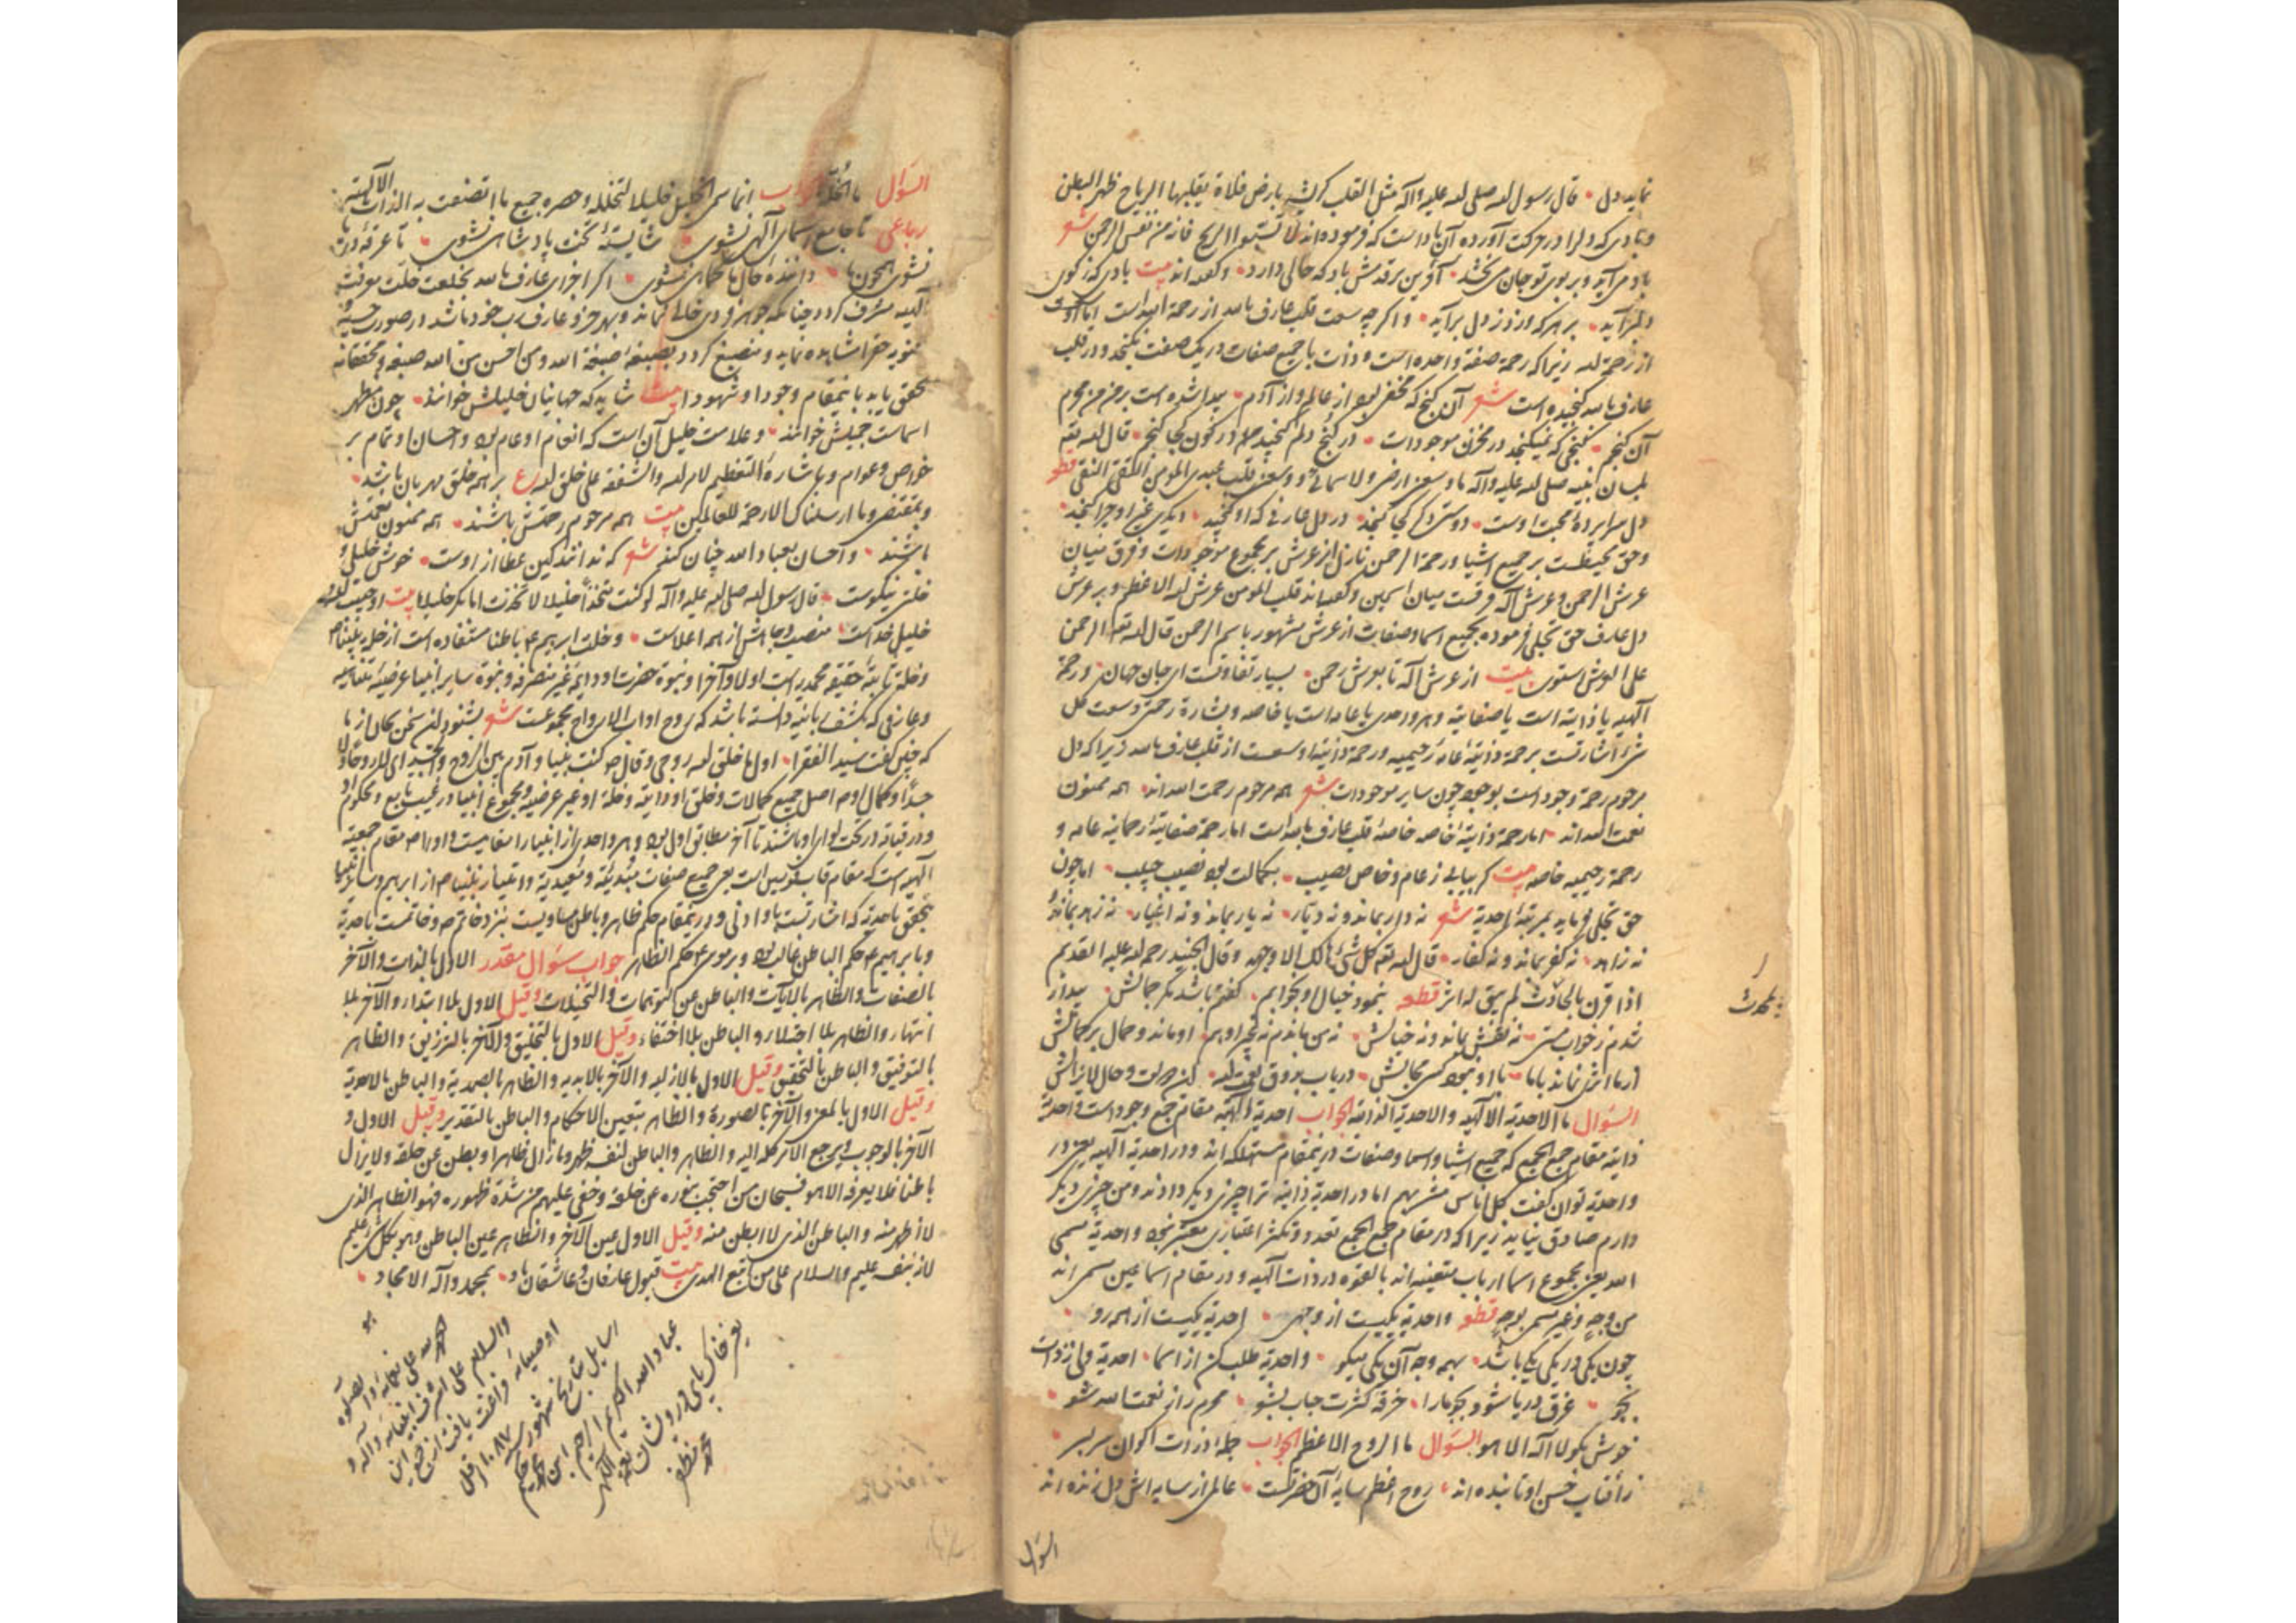 نماید دل • قال رسول الله صلی الله علیه وآله مثل القلب کریشة بارض فلاة یقلبها الریاح ظهر البطن
و بادی که دل را در حرکت آورده آن باد است که فرموده اند لا تسبّوا الریح فانه من نفس الرحمن شعر
باد می آید و بر بوی تو جان می بخشد • آفرین بر قدمش باد که حالی دارد • و گفته اند بیت بادی که ز کوی
دلبر آید • بر هر که وزد ز دل برآید • و اگر چه سعت قلب عارف بالله از رحمة الله است اما اوست
از رحمة الله زیرا که رحمة صفة واحده است و ذات با جمیع صفات در یک صفت نگنجد و در قلب
عارف بالله گنجیده است شعر آن گنج که مخفی بود از عالم و از آدم • پیدا شده است بر من من محرم
آن گنجم • گنجی که نمیگنجد در مخزن موجودات • در کنج دلم گنجید در کون کجا گنجم • قال الله تعه
بلسان نبیه صلی الله علیه وآله ما وسعنی ارضی ولا سمائی و وسعنی قلب عبدی المؤمن التقی النقی قطعه
دل سرابردۀ محبت اوست • دوستی دگر کجا گنجد • در دل عارفی که او گنجید • دیگری غیر او چرا گنجد •
و حق محیطست بر جمیع اشیا و رحمة الرحمن نازل از عرش بر مجموع موجودات و فرق میان
عرش الرحمن و عرش الله فرقست میان اسمین و گفته اند قلب المؤمن عرش الله الاعظم و بر عرش
دل عارف حق تجلی فرموده بجمیع اسما و صفات از عرش مشهور باسم الرحمن قال الله تعه الرحمن
علی العرش استوی بیت از عرش الله تا بعرش رحمن • بسیار تفاوتست ای جان جهان • و رحمة
الهیه یا ذاتیه است یا صفاتیه و هر واحدی یا عامه است یا خاصه و بشارة رحمتی وسعت کل
شیء اشارتست برحمة ذاتیۀ عامۀ رحیمیه و رحمة ذاتیه اوسعست از قلب عارف بالله زیرا که دل
مرحوم رحمة وجود است بوجود چون سایر موجودات شعر همه مرحوم رحمت الله اند • همه ممنون
نعمت الله اند • اما رحمة ذاتیۀ خاصه خاصۀ قلب عارف بالله است اما رحمة صفاتیۀ رحمانیه عامه و
رحمة رحیمیه خاصه بیت گر بیابی ز عام و خاص نصیب • بکمالت بود نصیب حبیب • اما چون
حق تجلی فرماید بمرتبۀ احدیة شعر نه دار بماند و نه دیّار • نه یار بماند و نه اغیار • نه زهد بماند
نه زاهد • نه کفر بماند و نه کفار • قال الله تعه کل شیء هالک الا وجهه وقال الجنید رحمه الله علیه القدیم
اذا قرن بالحادث لم یبق له اثر قطعه بنمود خیال او بخوابم • گفتم باشد مگر جمالش • بیدار
شدم ز خواب مستی • نه نقش بماند و نه خیالش • نه من ماندم نه غیر او هم • او ماند و جمال بر کمالش
از ما اثری نماند با ما • با او نبود کسی مجالش • دریاب بذوق نعمت الله •
السؤال ما الاحدیة الالهیه والاحدیة الذاتیة الجواب احدیة الهیه مقام جمع وجود است و احدیة
ذاتیه مقام جمع الجمع که جمیع اشیا و اسما و صفات درین مقام مستهلک اند و در احدیة الهیه یعنی در
واحدیة توان گفت کل اناس مشربهم اما در احدیة ذاتیه ترا چیزی دیگر دادند و من چیزی دیگر
دارم صادق نیاید زیرا که در مقام جمع الجمع تعدد و تکثر اعتباری معتبر نبود و احدیة مسمی
الله یعنی مجموع اسما ارباب متعینه اند بالقوه در ذات الهیه و در مقام اسما عین مسمی اند
من وجه و غیر مسمی بوجه قطعه واحدیة یکیست از وجهی • احدیة یکیست از همه رو •
چون یکی در یکی یکی باشد • بهمه وجه آن یکی نیکو • واحدیة طلب کن از اسما • احدیة ولی ز ذات
بجو • غرق دریا شو و بجو ما را • خرقۀ کثرت حباب بشو • محرم راز نعمت الله شو •
خوش بگو لا اله الا هو السؤال ما الروح الاعظم الجواب جملۀ ذرات اکوان سربسر •
ز آفتاب حسن او تابنده اند • روح اعظم سایۀ آن حضرتست • عالمی از سایه اش دل زنده اند
السؤال
بالمحدث
السؤال ما الخلة الجواب انما سمی الخلیل خلیلا لتخلله وحصره جمیع ما اتصفت به الذات الالهیة
رباعی تا جامع اسمای الهی نشوی • شایستۀ تخت پادشاهی نشوی • تا غرقۀ دریا
نشوی همچون ما • دانندۀ حال ما کماهی نشوی • اگر اجزای عارف بالله بخلعت خلّت معرفت
الهیه مشرف گردد چنانکه جوهر فردی خالی نماند و بهر جزو عارف رب خود باشد در صورت حسیه
حق را مشاهده نماید و منصبغ گردد بصبغۀ صبغة الله ومن احسن من الله صبغة
تحقق یابد باینمقام وجودا و شهودا بیت شاید که جهانیان خلیلش خوانند • چون مظهر
اسماست جمیلش خوانند • و علامت خلیل آن است که انعام او عام بود و احسان او تمام بر
خواص و عوام و باشارة التعظیم لامر الله والشفقة علی خلق الله ع بر همه خلق مهربان باشد •
و بمقتضی وما ارسلناک الا رحمة للعالمین بیت همه مرحوم رحمتش باشند • همه ممنون نعمتش
باشند • و احسان بعباد الله چنان کند شعر که ندانند کین عطا از اوست • خوش خلیلی و
خلتی نیکوست • قال رسول الله صلی الله علیه وآله لو کنت متخذا خلیلا لاتخذت ابابکر خلیلا بیت او حبیب الله و
خلیل خداست • منصب و جاهش از همه اعلاست • و خلت ابرهیم ع باطنا مستفاده است از خلة نبینا ص
و خلة ثابتۀ حقیقة محمدیه است اولا و آخرا و نبوة حضرت او دایمۀ غیر منصرفه و نبوة سایر انبیا عرضیۀ متناهیه
و عارفی که بکشف دانسته باشد که روح او اب الارواح بمجموعست شعر بشنو این سخن بجان از ما
که چنین گفت سید الفقرا • اول ما خلق الله روحی وقال ص کنت نبیا وآدم بین الروح والجسد
جمیع کمالات و خلق او ذاتیه و خلة او غیر عرضیه و مجموع انبیا در غیب تابع و محکوم او
و در قیامة در تحت لوای او باشند تا آخر مطابق اول بود و هر واحدی از انبیا را مقامیست و او را ص مقام جمعیة
الهیه است که مقام قاب قوسین است یعنی جمیع صفات
تحقق باحدیة که اشارتست باو ادنی و درینمقام حکم ظاهر و باطن مساویست
و بابراهیم ع حکم الباطن غالب بود و بر موسی ع حکم الظاهر جواب سؤال مقدر الاول بالذات والآخر
بالصفات والظاهر بالآیات والباطن عن التوهمات والتخیلات وقیل الاول بلا ابتداء والآخر بلا
انتهاء والظاهر بلا اجتلاء والباطن بلا اختفاء وقیل الاول بالتخلیق والآخر بالترزیق والظاهر
بالتوفیق والباطن بالتحقیق وقیل الاول بالازلیه والآخر بالابدیه والظاهر بالصمدیة والباطن بالاحدیة
وقیل الاول بالمعنی والآخر بالصورة والظاهر بتعین الاحکام والباطن بالتقدیر وقیل الاول و
الآخر بالوجوب ویرجع الامر کله الیه والظاهر والباطن لنفسه ظهر وما زال ظاهرا وبطن عن خلقه ولا یزال
باطنا فلا یعرفه الا هو فسبحان من احتجب بنوره عن خلقه وخفی علیهم من شدة ظهوره فهو الظاهر الذی
لا اظهر منه والباطن الذی لا ابطن منه وقیل الاول عین الآخر والظاهر عین الباطن وهو بکل شیء علیم
علیم والسلام علی من اتبع الهدی بیت قبول عارفان و عاشقان باد • بمحمد وآله الامجاد •
هو
الحمد لله علی نعمائه والصلوة
والسلام علی اشرف انبیائه وآله و
اوصیائه فراغت یافت از جمع این
رسایل بتاریخ شهور سنه ۱۰۸۷ اقل
عباد الله الکریم ابراهیم ابن
یعنی خاک پای درویشان
محمد مظفر